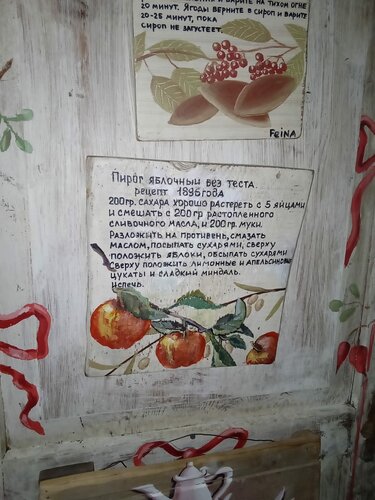 20 минут. Ягоды верните в сироп и варите
20-25 минут, пока
сироп не загустеет.
FeiNA
Пирог яблочный без теста.
рецепт 1896 года
200гр. сахара хорошо растереть с 5 яйцами
и смешать с 200 гр растопленного
сливочного масла, и 200 гр. муки.
Разложить на противень, смазать
маслом, посыпать сухарями, сверху
положить яблоки, обсыпать сухарями
сверху положить лимонные и апельсиновые
цукаты и сладкий миндаль.
испечь.